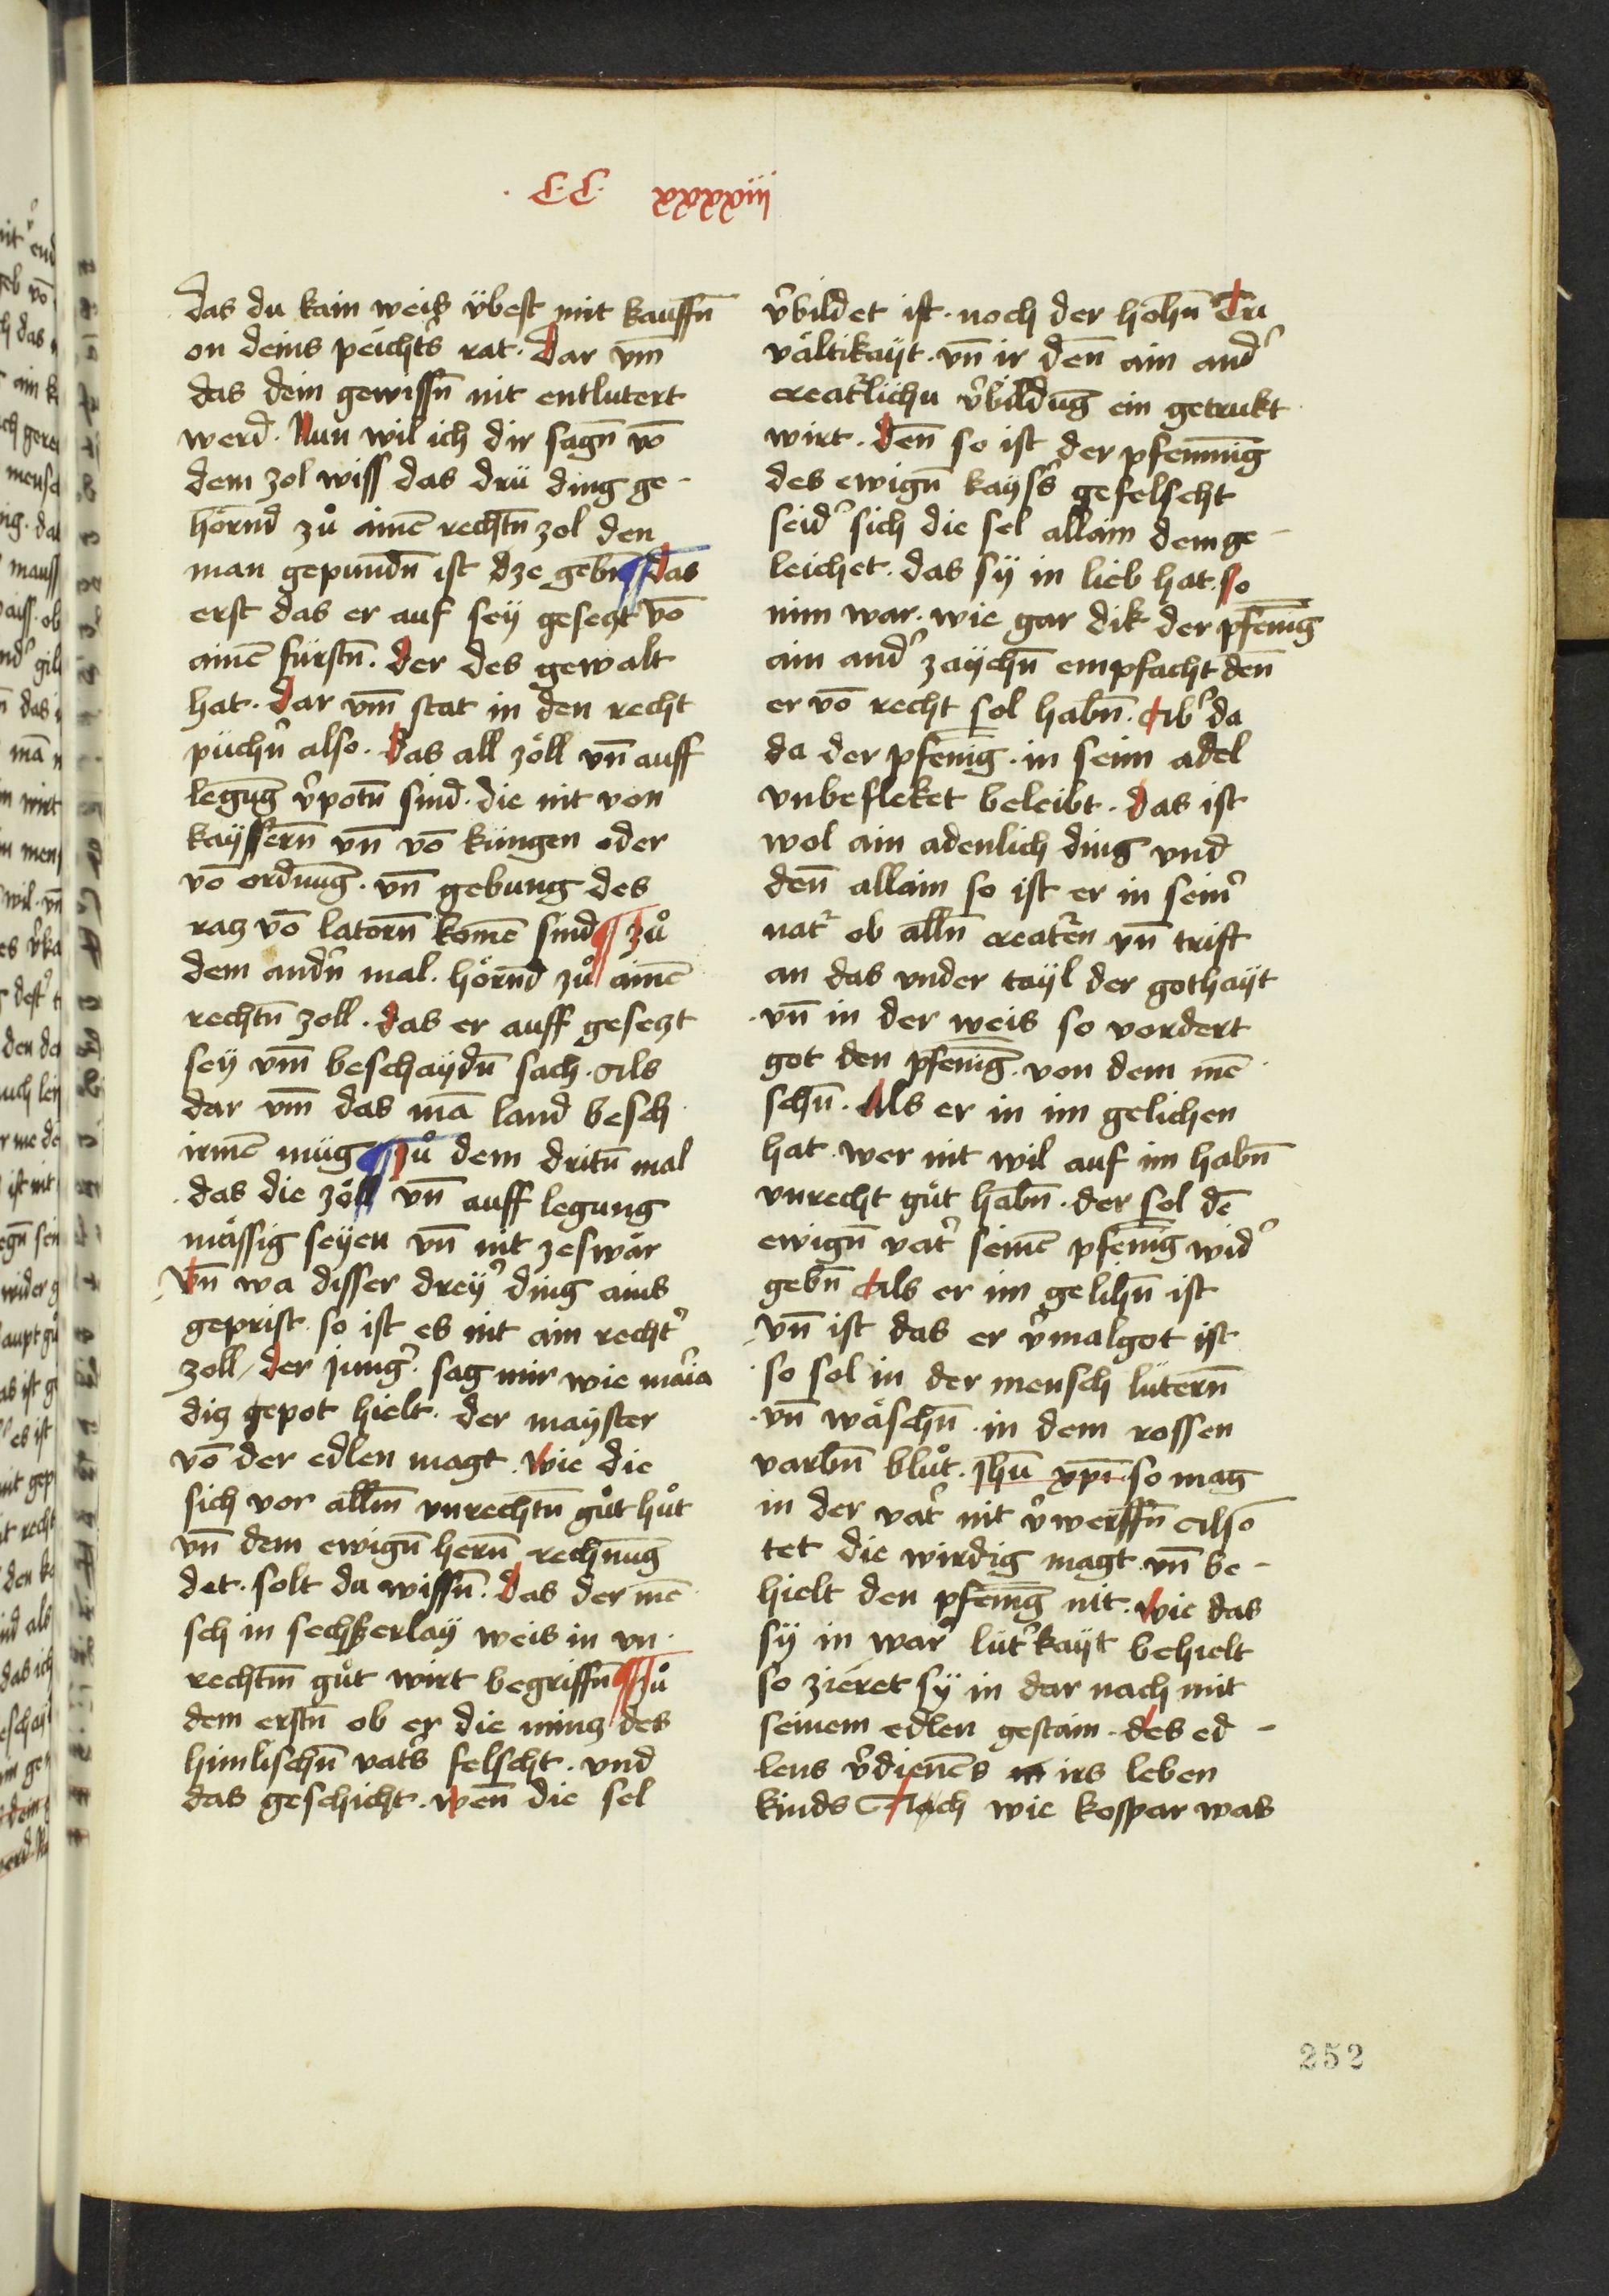 · C·C· xxxxiiij
das du kain weis übest mit kauffn̄
on deins peichters rat. Dar vm̄
das dein gewissn̄ nit entlutert
werd. Nun wil ich dir sagn̄ vō
dem zol wiss das drü ding ge-
hörnd zů ainē rechtn̄ zol den
man gepundn̄ ist dze gebn̄ ¶ das
erst das er auf sey gesetzt vō
ainē fürstn̄. der des gewalt
hat. Dar vm̄ stat in den recht
püchn̄ also. Das all zöll vn̄ auff
legūg v̉potn̄ sind. die nit von
kayssern̄ vn̄ vō küngen oder
vō ordnūg. vn̄ gebung des
ratz vō latorn̄ komē sind ¶ zů
dem andn̄ mal. hörnd zů ainē
rechtn̄ zoll. das er auff gesetzt
sey vm̄ beschaydn̄ sach. Als
dar vm̄ das mā land besch
irmē müg ¶ zů dem dritn̄ mal
das die zöll vn̄ auff legung
mässig seyen vn̄ nit zeswär
Vn̄ wa disser dreỷ ding ains
geprist so ist es nit ain recht̉
zoll / der jung̉. sag mir wie maria
ditz gepot hielt. der mayster
vō der edlen magt. Wie die
sich vor allm̄ vnrechtn̄ gůt hůt
vn̄ dem ewign̄ hern̄ rechnūg
det. solt du wissn̄. Das der mē
sch in sechßerlay weis in vn
rechtm̄ gůt wirt begriffn̄ ¶ zů
dem erstn̄ ob er die mintz des
himlischn̄ vat̉s felscht. vnd
das geschicht. wen̄ die sel
v̉bildet ist. noch der hohn̄ Tri
uältikayt. vn̄ ir den̄ ain and̉
creat̉lichu v̉bildūg ein getrukt
wirt. Den̄ so ist der pfenning
des ewign̄ kays̉s gefelscht
seid̉ sich die sel allain dem ge-
leichet. das sy in lieb hat. so
nim war. wie gar dik der pfenīg
ain and̉ zaychn̄ empfacht den̄
er vō recht sol habn̄. Ab̉ da
da der pfenīg. in seim adel
vnbefleket beleibt. das ist
wol ain adenlich ding vnd
den̄ allain so ist er in sein̉
nat̉ ob alln̄ creat̉en vn̄ trift
an das vnder tayl der gothayt
vn̄ in der weis so vordert
got den pfenīg. von dem mē
schn̄. Als er in im gelichen
hat. wer nit wil auf im habn̄
vnrecht gůt habn̄. der sol dē
ewign̄ vat̉ seinē pfenīg wid̉
gebn̄ Als er im gelihn̄ ist
Vn̄ ist das er v̉malgot ist
so sol in der mensch lütern̄
vn̄ wäschn̄. in dem rossen
varbn̄ blůt. jhū xp̄i so mag
in der vat̉ nit v̉werffn̄ Also
tet die wirdig magt. vn̄ be-
hielt den pfenīg nit. Wie das
sy in war̉ lüt̉kayt behielt
so zieret sy in dar nach mit
seinem edlen gestain. des ed-
lens v̉dienēs irs leben
kinds Ach wie kospar was
252